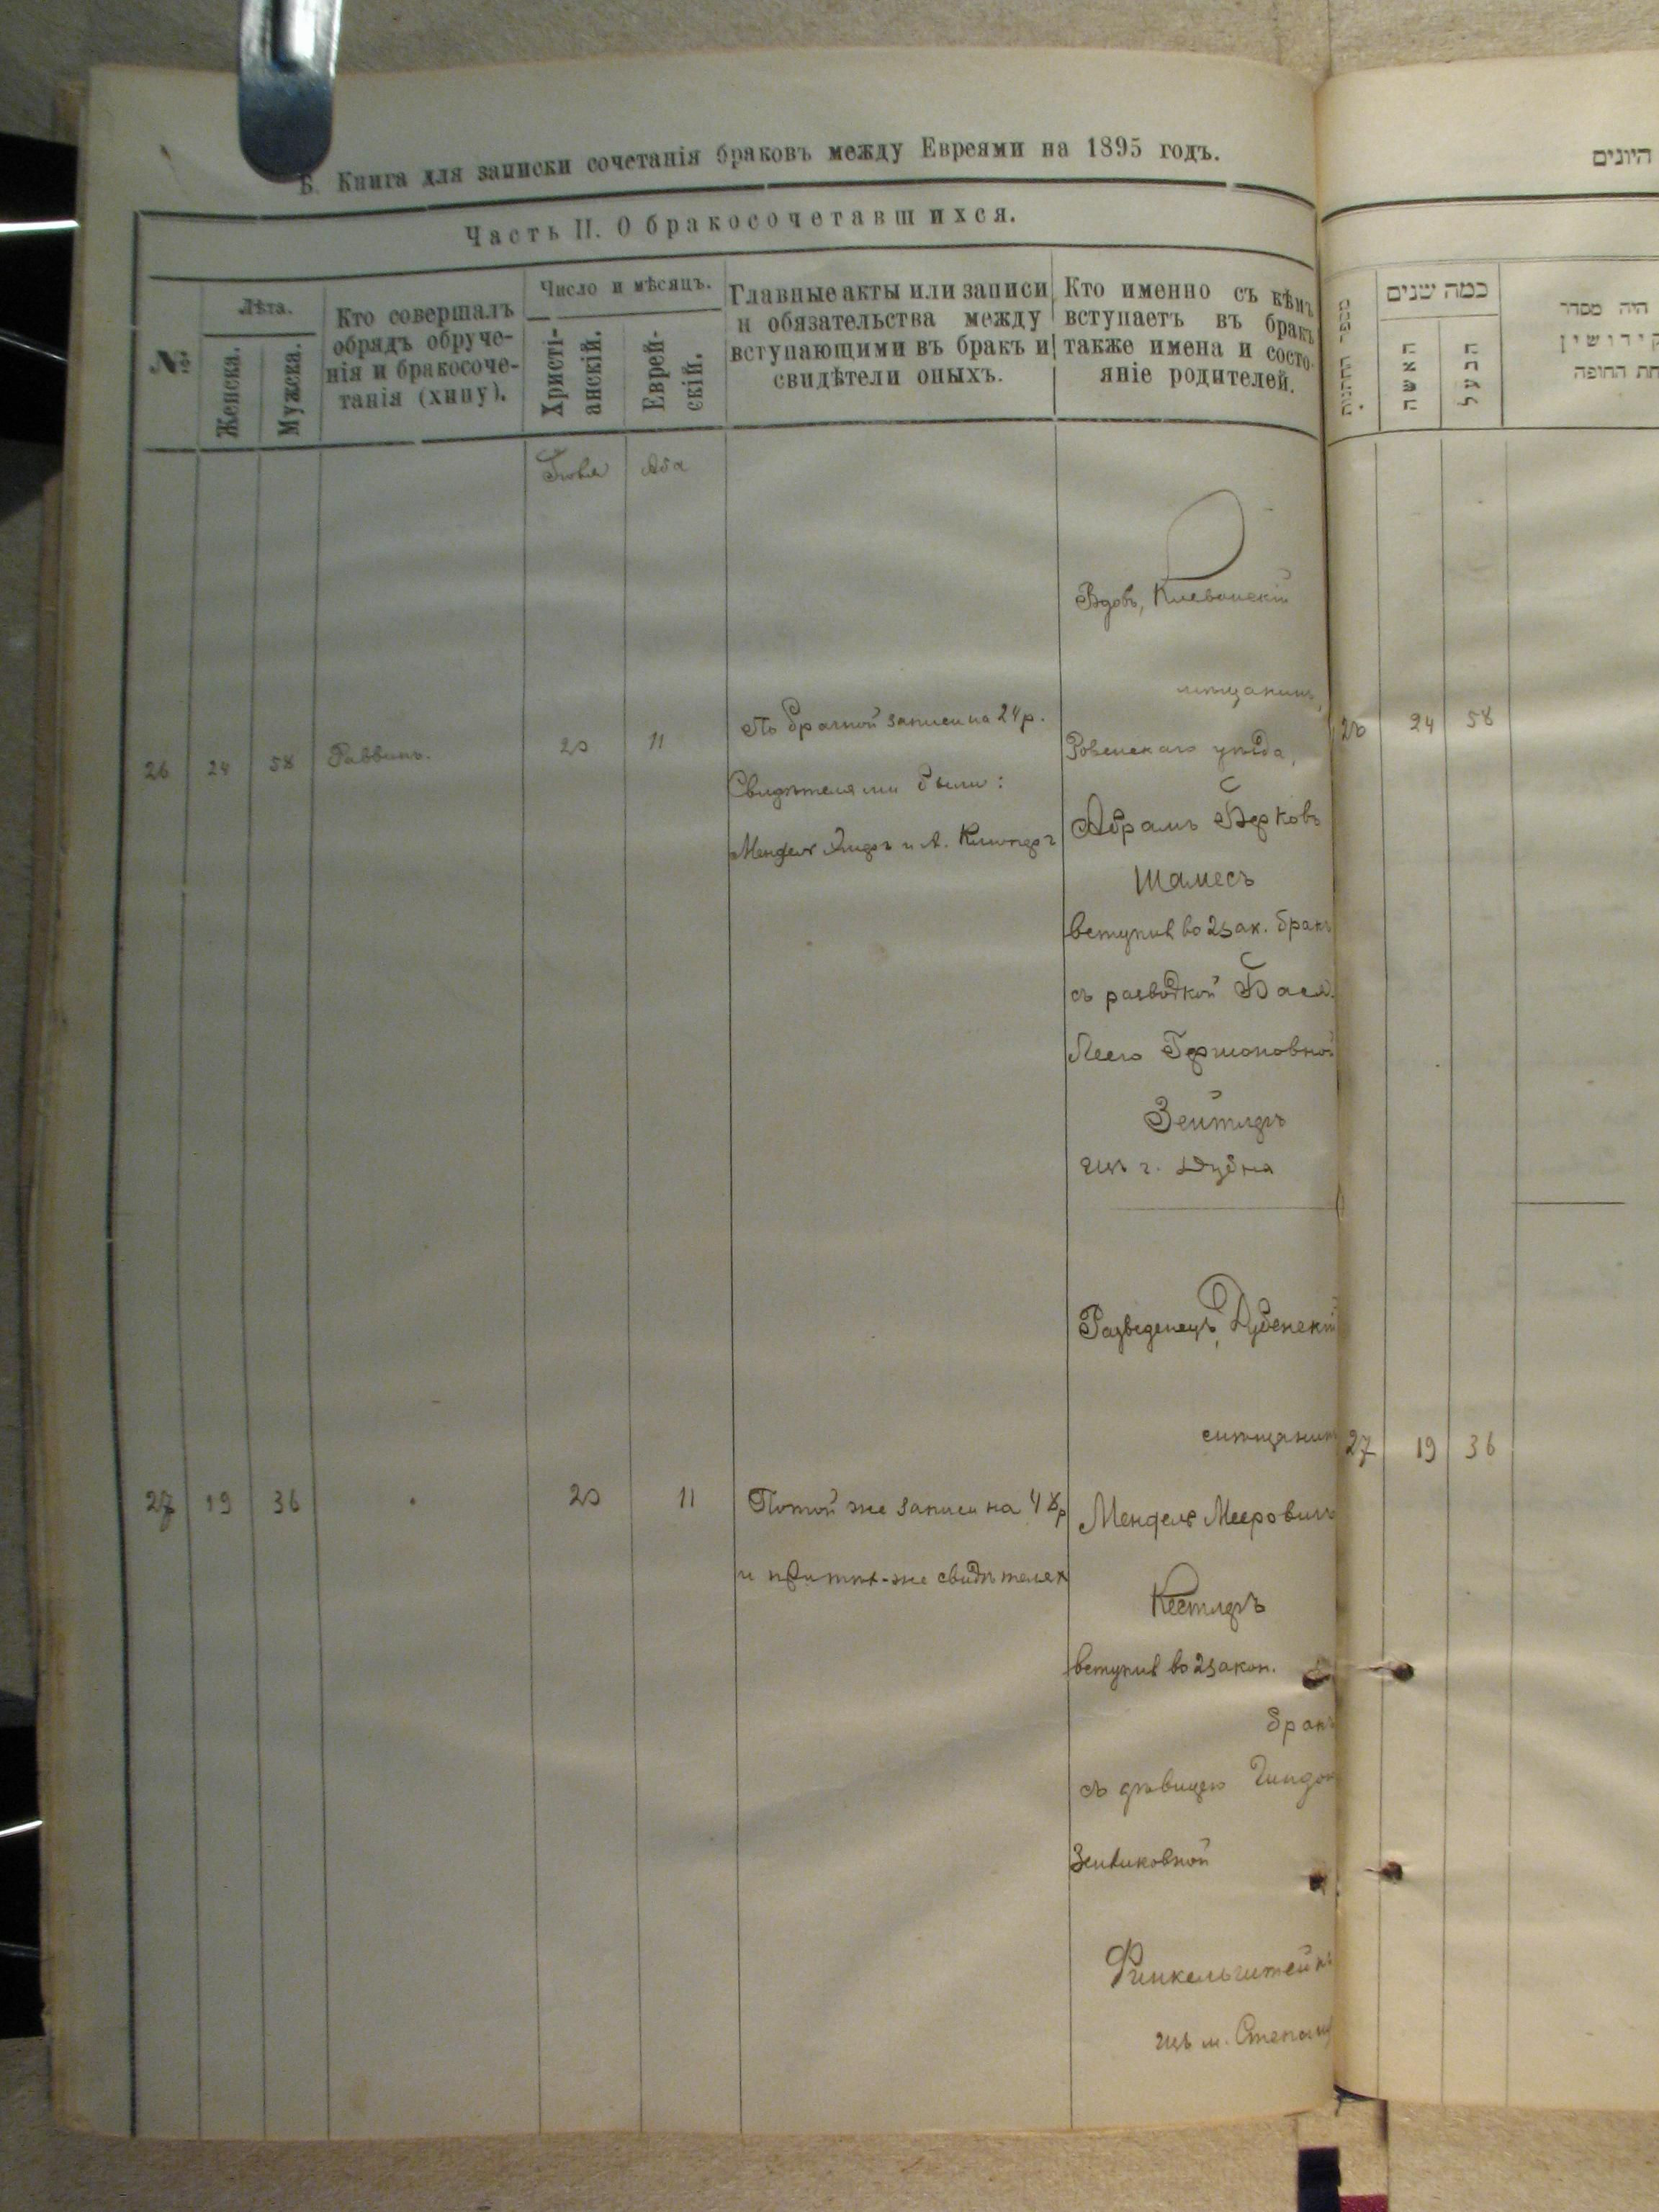 Б. Книга для записки сочетанія браковъ между Евреями на 1895 годъ.
Часть II. О бракосочетавшихся.
№
Лѣта.
Женска.
Мужска.
Кто совершалъ
обрядъ обруче-
нія и бракосоче-
танія (хипу).
Число и мѣсяцъ.
Христі-
анскій.
Еврей-
скій.
Главные акты или записи
и обязательства между
вступающими въ бракъ и
свидѣтели оныхъ.
Кто именно съ кѣмъ
вступаетъ въ бракъ
также имена и состо-
яніе родителей.
Іюля
Аба
26
24
58
Раввинъ.
20
11
По брачной записи на 24 р.
Свидѣтелями были:
Мендель и А.
Вдовъ, Клеванскій
мѣщанинъ,
Ровенскаго уѣзда,
Абрамъ Берковъ
Шамесъ
вступил во 2 зак. бракъ
съ разводкой Бася
Леею
Зейтлеръ
изъ г. Дубна
27
19
36
20
11
По той же записи на 48 р
и при тѣхъ-же свидѣтелях
Разведенецъ, Дубенскій
мѣщанинъ
Мендель Мееровичъ
вступил во 2 закон.
бракъ
съ дѣвицею
Финкельштейнъ
изъ м. Степань
היונים
מספר החתונות
כמה שנים
האשה
הבעל
היה מסדר
קידושין
תחת החופה
26
24
58
27
19
36